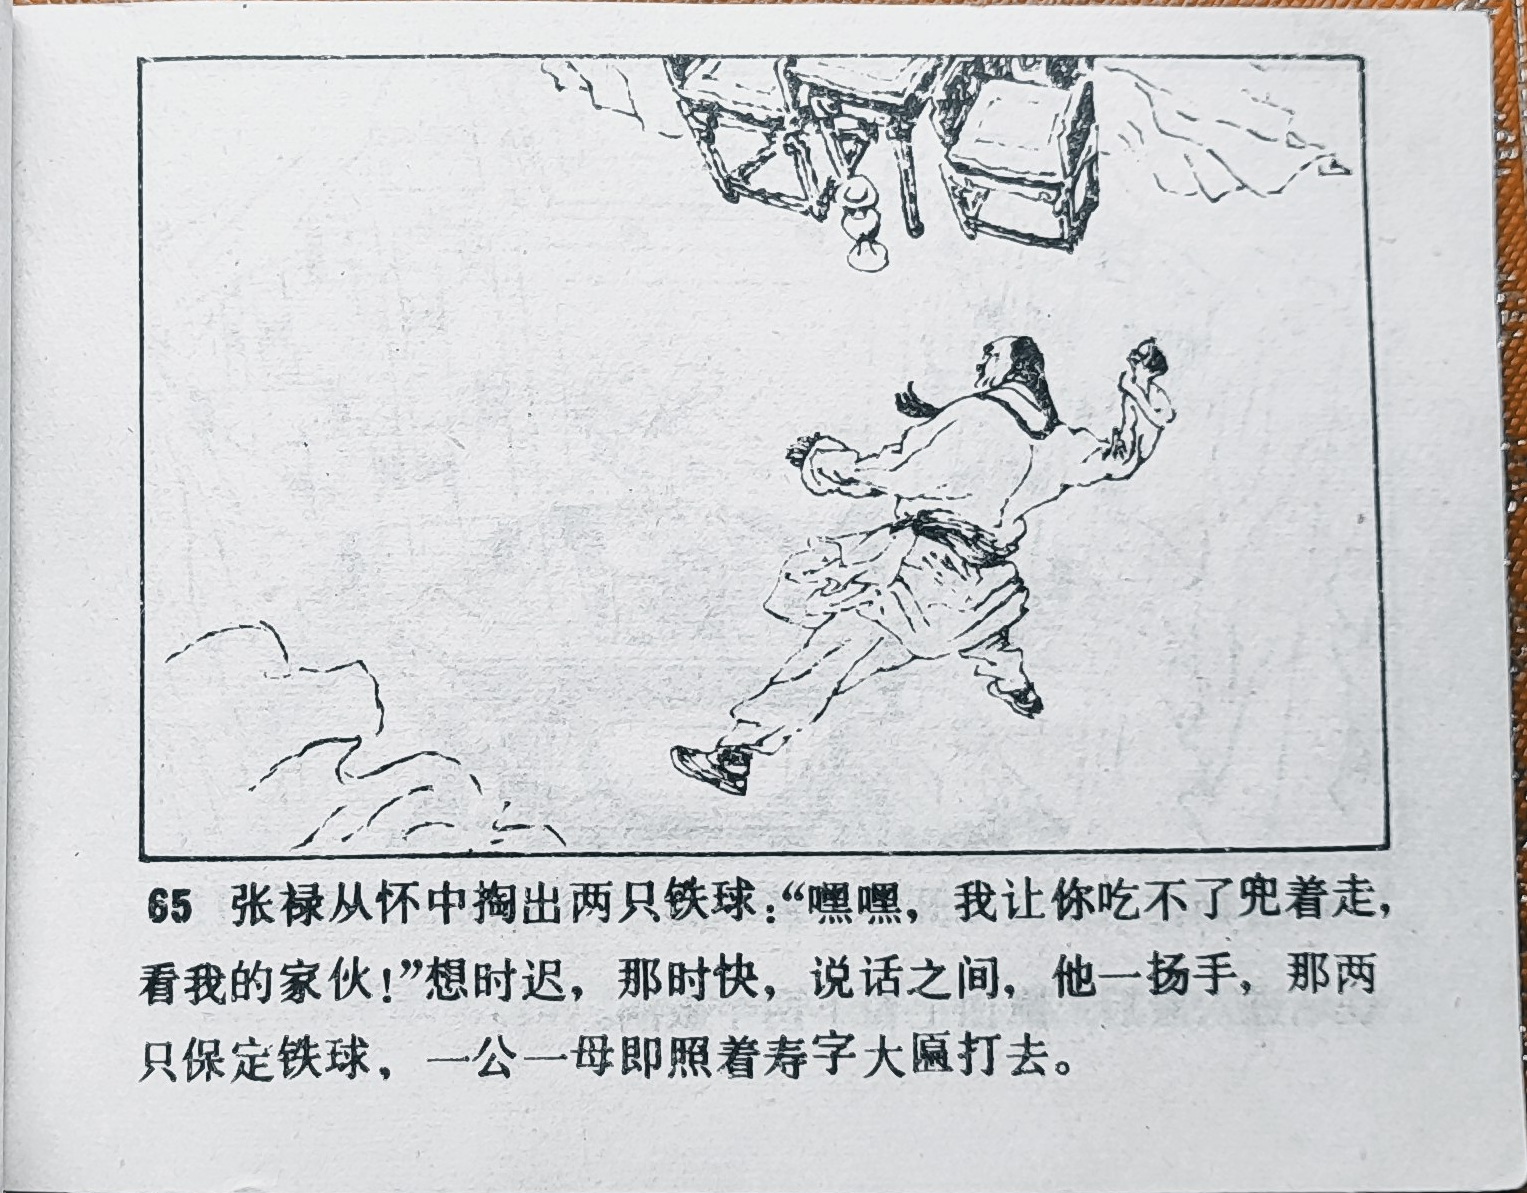 65 张禄从怀中掏出两只铁球：“嘿嘿，我让你吃不了兜着走，
看我的家伙！”想时迟，那时快，说话之间，他一扬手，那两
只保定铁球，一公一母即照着寿字大匾打去。